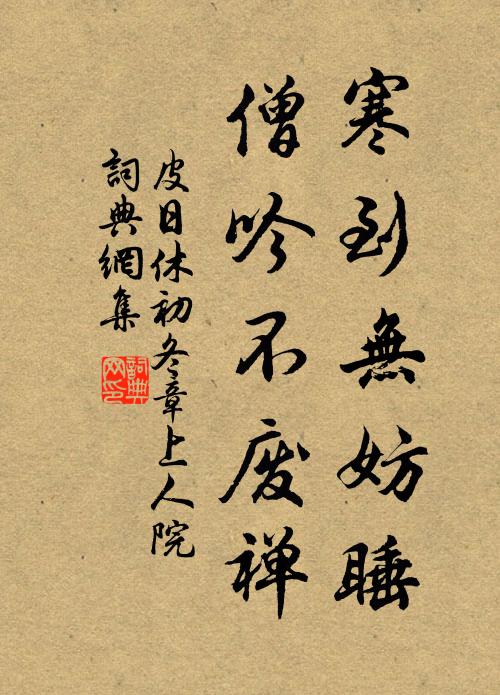 寒到無妨睡
僧吟不废禅
皮日休初冬章上人院
詞典網集
詞典网印